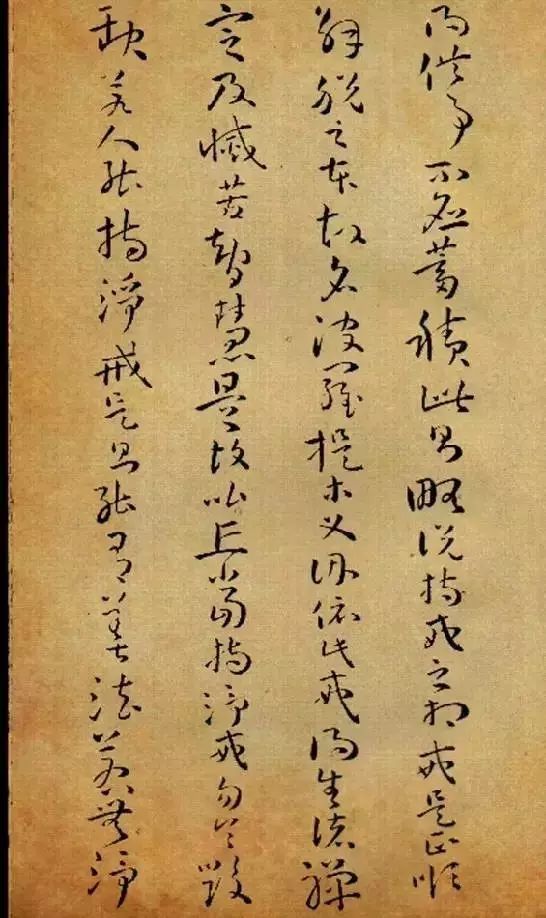 得供事不应蓄積此則略说持戒之相戒是正順
解脱之本故名波羅提木叉因依此戒得生諸禅
定及滅苦智慧是故比丘當持淨戒勿令毁
缺若人能持淨戒是則能有善法若無淨